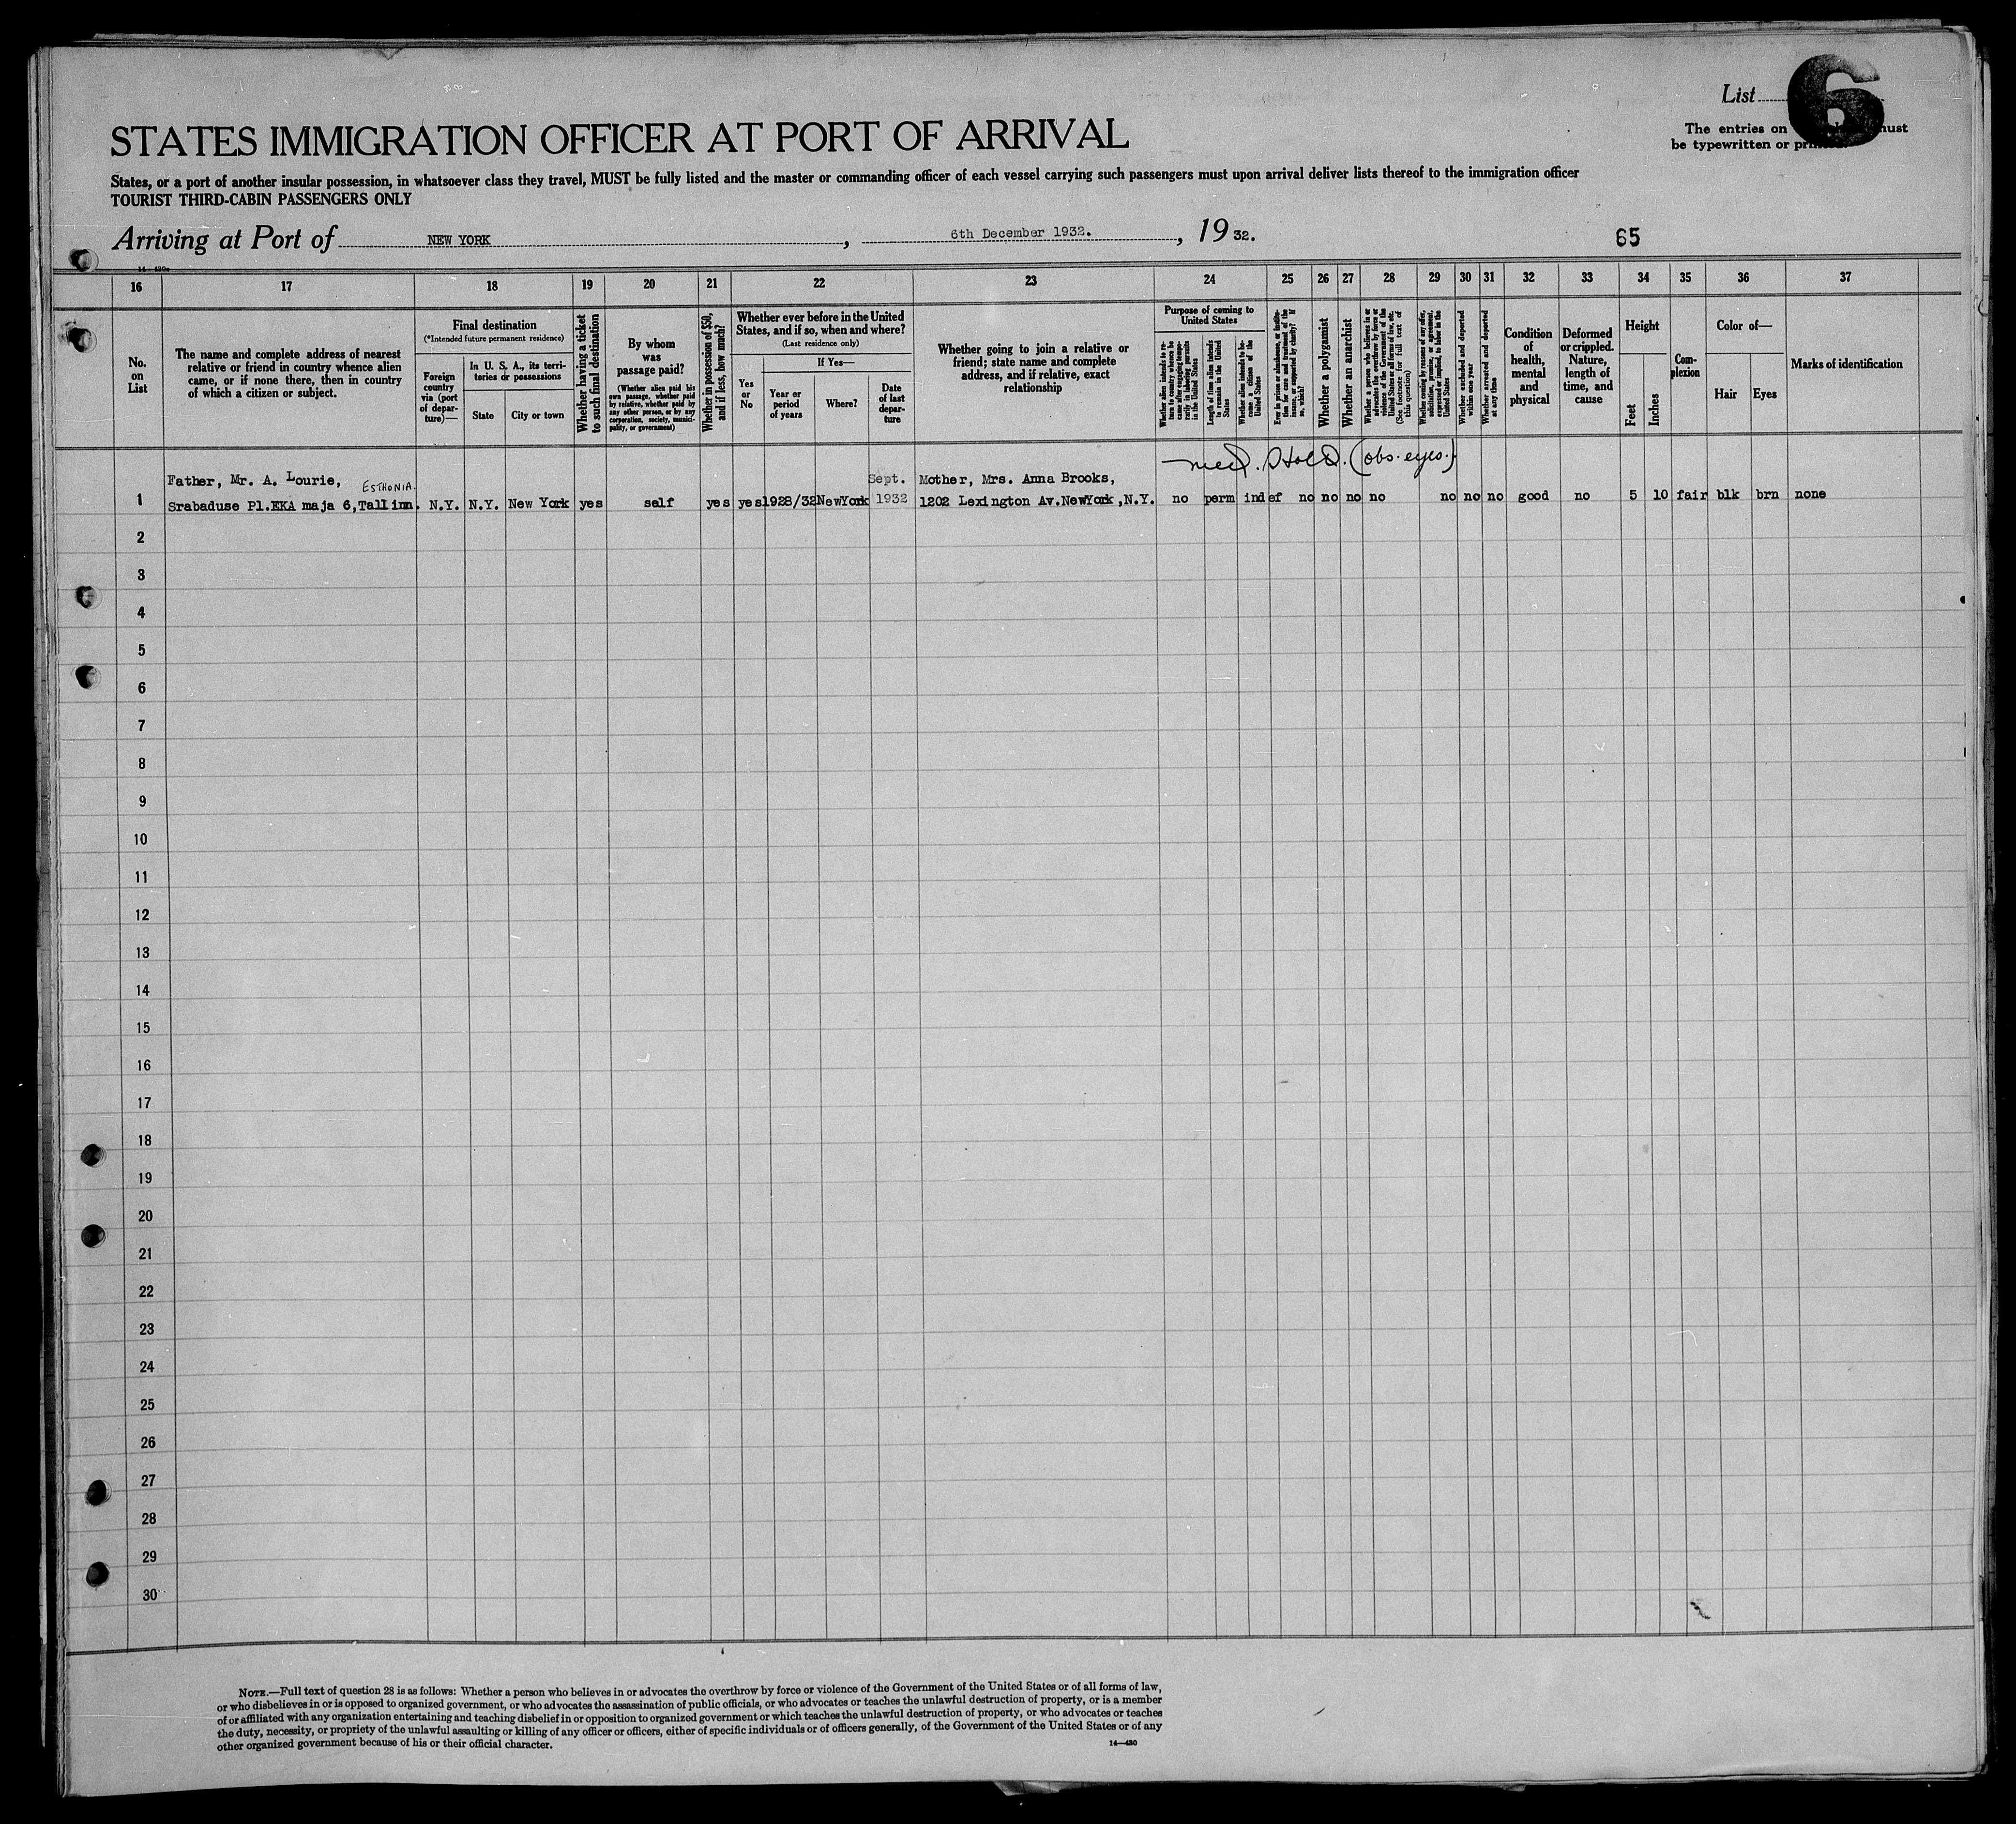 List 6
The entries on must
be typewritten or
STATES IMMIGRATION OFFICER AT PORT OF ARRIVAL
States, or a port of another insular possession, in whatsoever class they travel, MUST be fully listed and the master or commanding officer of each vessel carrying such passengers must upon arrival deliver lists thereof to the immigration officer
TOURIST THIRD-CABIN PASSENGERS ONLY
Arriving at Port of NEW YORK, 6th December 1932., 19 32.
65
16 17 18 19 20 21 22 23 24 25 26 27 28 29 30 31 32 33 34 35 36 37
No.
on
List
The name and complete address of nearest
relative or friend in country whence alien
came, or if none there, then in country
of which a citizen or subject.
Final destination
(*Intended future permanent residence)
Foreign
country
via (port
of depar-
ture)—
In U. S. A., its terri-
tories or possessions
State
City or town
Whether having a ticket
to such final destination
By whom
was
passage paid?
(Whether alien paid his
own passage, whether paid
by relative, whether paid by
any other person, or by any
corporation, society, munici-
pality, or government)
Whether in possession of $50,
and if less, how much?
Whether ever before in the United
States, and if so, when and where?
(Last residence only)
Yes
or
No
If Yes—
Year or
period
of years
Where?
Date
of last
depar-
ture
Whether going to join a relative or
friend; state name and complete
address, and if relative, exact
relationship
Purpose of coming to
United States
Whether alien intends to re-
turn to country whence he
came after engaging tempo-
rarily in laboring pursuits
in the United States
Length of time alien intends
to remain in the United
States
Whether alien intends to be-
come a citizen of the
United States
Ever in prison or almshouse, or institu-
tion for care and treatment of the
insane, or supported by charity? If
so, which?
Whether a polygamist
Whether an anarchist
Whether a person who believes in or
advocates the overthrow by force or
violence of the Government of the
United States or all forms of law, etc.
(See footnote for full text of
this question)
Whether coming by reasons of any offer,
solicitation, promise, or agreement,
expressed or implied, to labor in the
United States
Whether excluded and deported
within one year
Whether arrested and deported
at any time
Condition
of
health,
mental
and
physical
Deformed
or crippled.
Nature,
length of
time, and
cause
Height
Feet
Inches
Com-
plexion
Color of—
Hair
Eyes
Marks of identification
med. Hold. (obs. eyes.)
Father, Mr. A. Lourie, ESTHONIA. Sept. Mother, Mrs. Anna Brooks,
1 Srabaduse Pl.EKA maja 6,Tallinn. N.Y. N.Y. New York yes self yes yes 1928/32 NewYork 1932 1202 Lexington Av.NewYork,N.Y. no perm indef no no no no no no no good no 5 10 fair blk brn none
2
3
4
5
6
7
8
9
10
11
12
13
14
15
16
17
18
19
20
21
22
23
24
25
26
27
28
29
30
NOTE.—Full text of question 28 is as follows: Whether a person who believes in or advocates the overthrow by force or violence of the Government of the United States or of all forms of law,
or who disbelieves in or is opposed to organized government, or who advocates the assassination of public officials, or who advocates or teaches the unlawful destruction of property, or is a member
of or affiliated with any organization entertaining and teaching disbelief in or opposition to organized government or which teaches the unlawful destruction of property, or who advocates or teaches
the duty, necessity, or propriety of the unlawful assaulting or killing of any officer or officers, either of specific individuals or of officers generally, of the Government of the United States or of any
other organized government because of his or their official character.
14—430